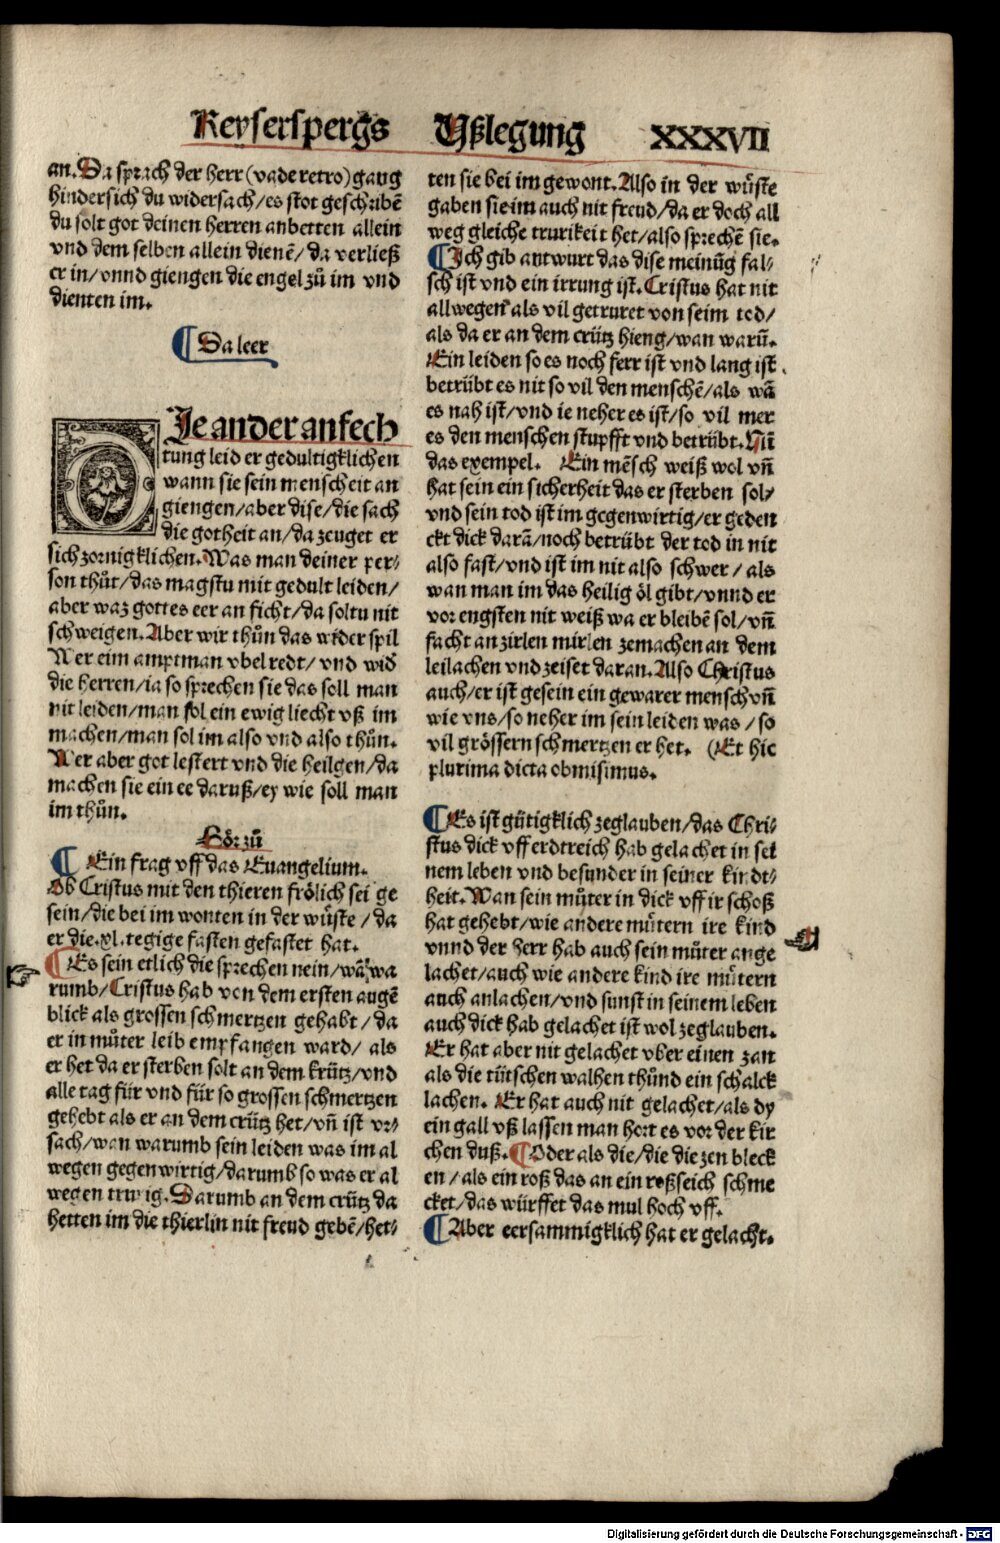 Keyserspergs Vßlegung XXXVII
an. Da sprach der herr (vade retro) gang
hindersich du widersach/es stot geschribē
du solt got deinen herren anbetten allein
vnd dem selben allein dienē/da verließ
er in/vnnd giengen die engel zů im vnd
dienten im.
¶ Da leer
DIe ander anfech
tung leid er gedultigklichen
wann sie sein menscheit an
giengen/aber dise/die sach
die gotheit an/da zeuget er
sich zornigklichen. Was man deiner per⸗
son thůt/das magstu mit gedult leiden/
aber waz gottes eer an ficht/da soltu nit
schweigen. Aber wir thůn das wider spil
Wer eim amptman vbel redt/vnd wid̄
die herren/ia so sprechen sie das soll man
nit leiden/man sol ein ewig liecht vß im
machen/man sol im also vnd also thůn.
Wer aber got lestert vnd die heilgen/da
machen sie ein ee daruß/ey wie soll man
im thůn.
Hör zů
¶ Ein frag vff das Euangelium.
Ob Cristus mit den thieren frölich sei ge
sein/die bei im wonten in der wůste/da
er die.xl.tegige fasten gefastet hat.
¶ Es sein etlich die sprechen nein/wā wa
rumb/Cristus hab von dem ersten augē
blick als grossen schmertzen gehabt/da
er in můter leib empfangen ward/als
er het da er sterben solt an dem krütz/vnd
alle tag für vnd für so grossen schmertzen
gehebt als er an dem crütz het/vn̄ ist vr⸗
sach/wan warumb sein leiden was im al
wegen gegenwirtig/darumb so was er al
wegen trurig. Darumb an dem crütz da
hetten im die thierlin nit freud gebē/het⸗
ten sie bei im gewont. Also in der wůste
gaben sie im auch nit freud/da er doch all
weg gleiche trurikeit het/also sprechē sie.
¶ Ich gib antwurt das dise meinūg fal⸗
sch ist vnd ein irrung ist. Cristus hat nit
allwegen als vil getruret von seim tod/
als da er an dem crütz hieng/wan warū.
Ein leiden so es noch ferr ist vnd lang ist
betrübt es nit so vil den menschē/als wā
es nah ist/vnd ie neher es ist/so vil mer
es den menschen stupfft vnd betrübt. Nim̄
das exempel. Ein mēsch weiß wol vn̄
hat sein ein sicherheit das er sterben sol/
vnd sein tod ist im gegenwirtig/er geden
ckt dick darā/noch betrübt der tod in nit
also fast/vnd ist im nit also schwer/als
wan man im das heilig öl gibt/vnnd er
vor engsten nit weiß wa er bleibē sol/vn̄
facht an zirlen mirlen zemachen an dem
leilachen vnd zeiset daran. Also Christus
auch/er ist gesein ein gewarer mensch vn̄
wie vns/so neher im sein leiden was/so
vil grössern schmertzen er het. (Et hic
plurima dicta obmisimus.
¶ Es ist gütigklich zeglauben/das Chri⸗
stus dick vff erdtreich hab gelachet in sei
nem leben vnd besunder in seiner kindt⸗
heit. Wan sein můter in dick vff ir schoß
hat gehebt/wie andere mütern ire kind
vnnd der herr hab auch sein můter ange
lachet/auch wie andere kind ire mütern
auch anlachen/vnd sunst in seinem leben
auch dick hab gelachet ist wol zeglauben.
Er hat aber nit gelachet vber einen zan
als die tütschen walhen thůnd ein schalck
lachen. Er hat auch nit gelachet/als dy
ein gall vß lassen man hort es vor der kir
chen duß. ¶ Oder als die/die die zen bleck
en/als ein roß das an ein roßseich schme
cket/das würffet das mul hoch vff.
¶ Aber eersammigklich hat er gelacht.
Digitalisierung gefördert durch die Deutsche Forschungsgemeinschaft - DFG